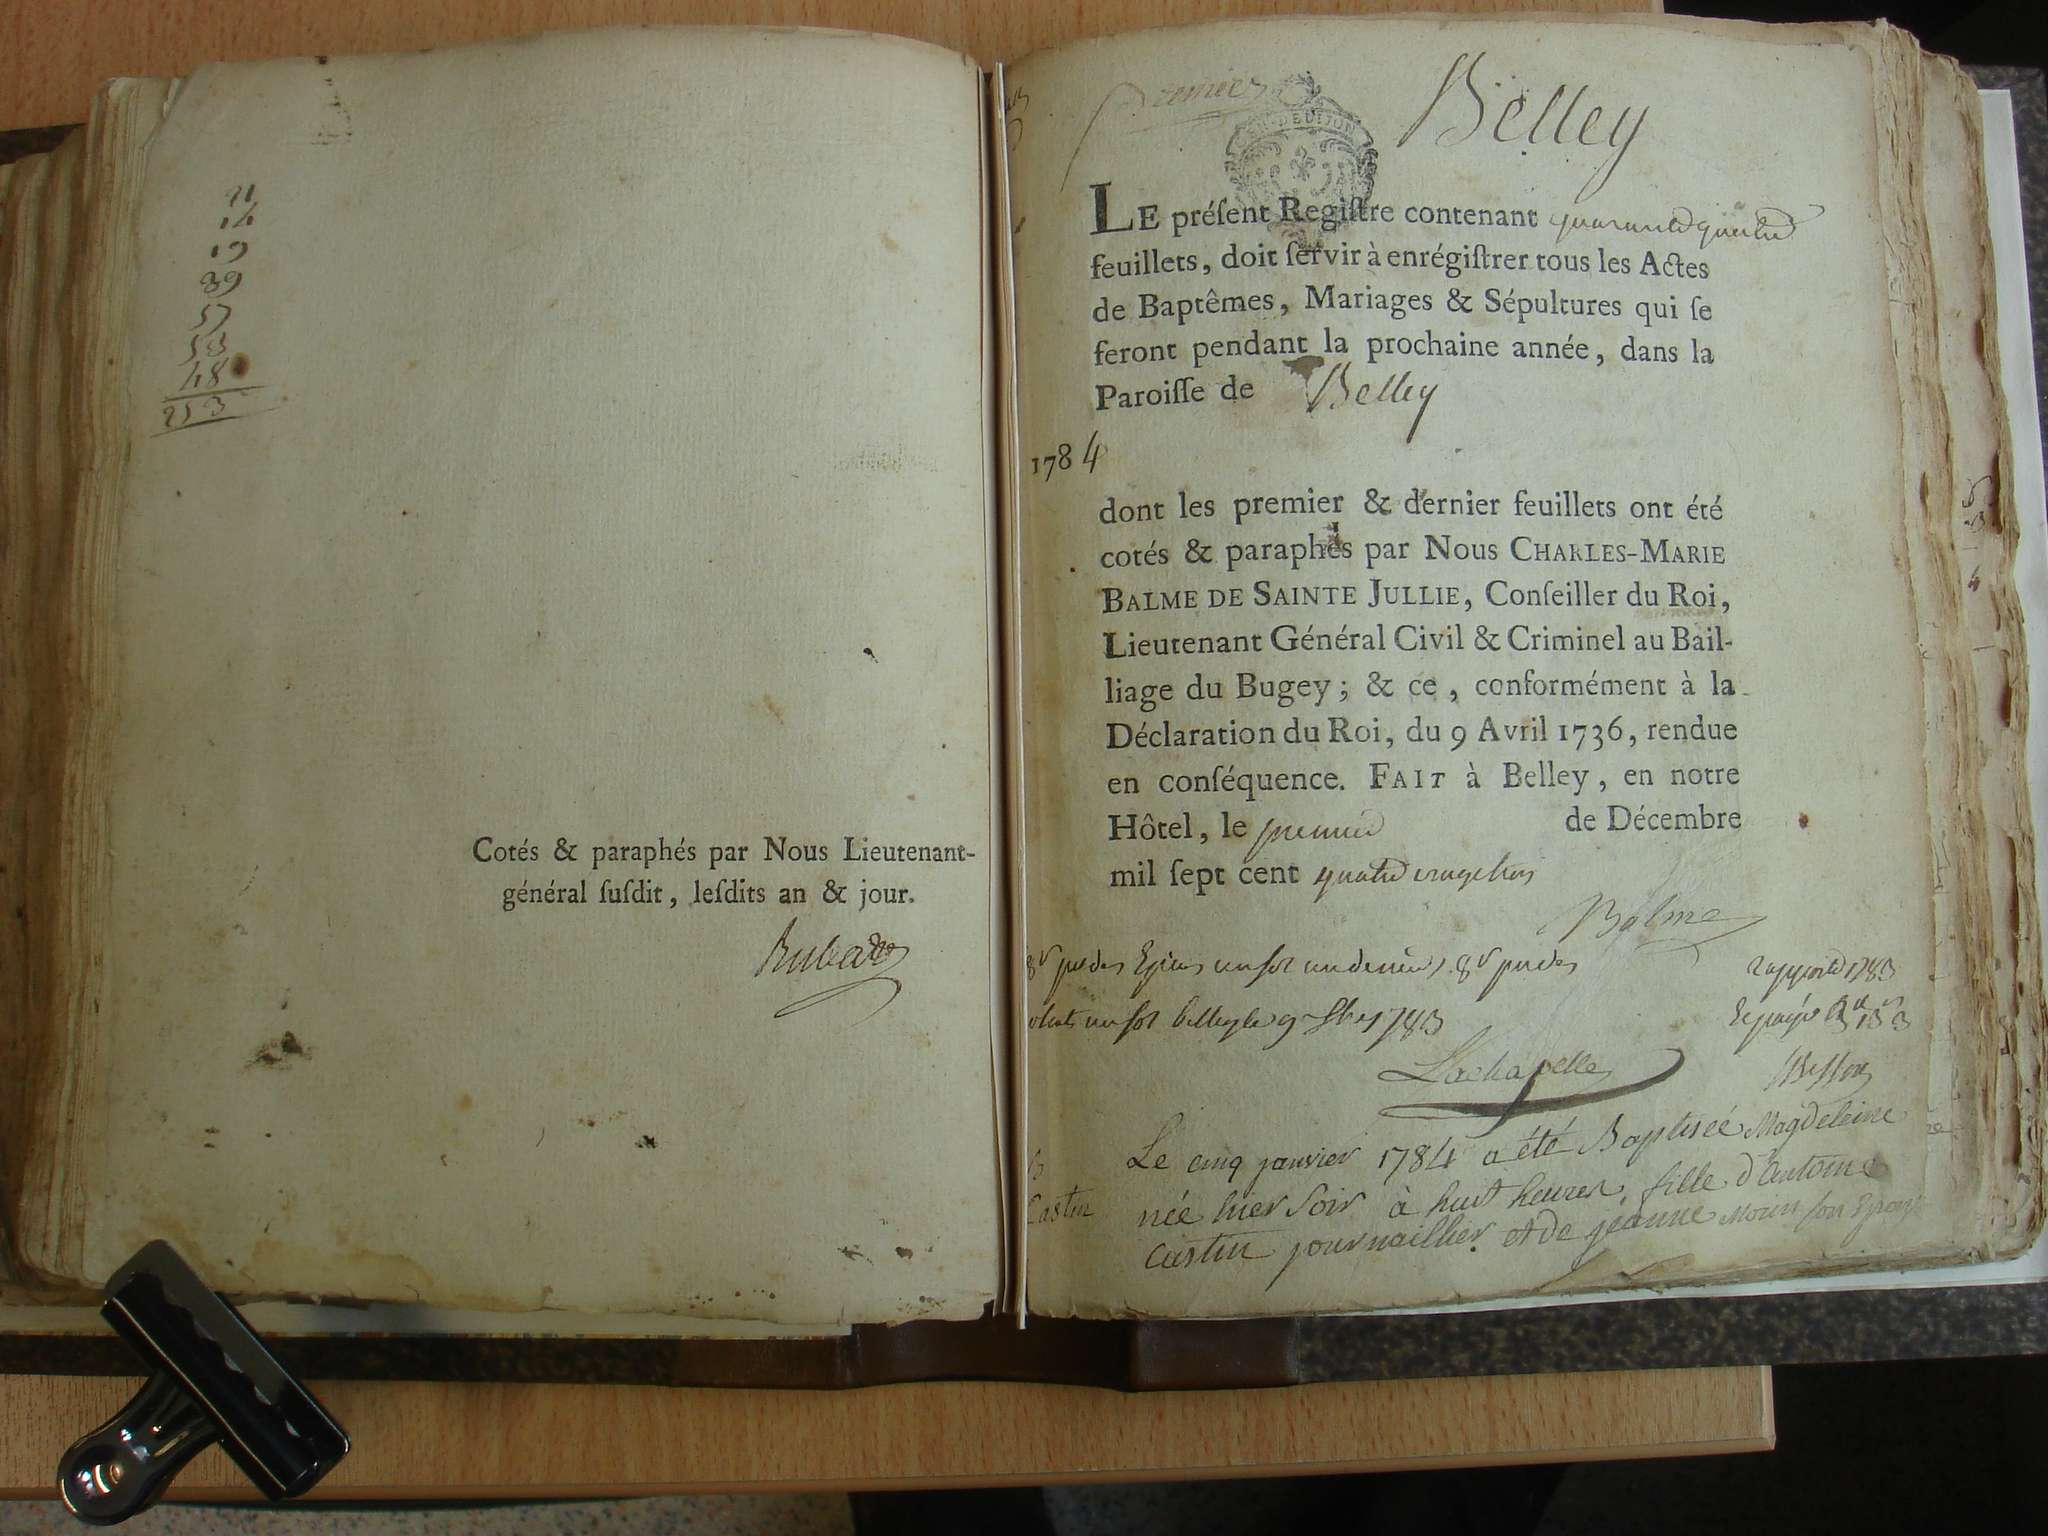 21
14
19
39
57
53
48
253
Cotés & paraphés par Nous Lieutenant-
général ſuſdit, leſdits an & jour.
Premier
DE DIJON
Belley
LE préſent Regiſtre contenant quarante quatre
feuillets, doit ſervir à enrégiſtrer tous les Actes
de Baptêmes, Mariages & Sépultures qui ſe
feront pendant la prochaine année, dans la
Paroiſſe de Belley
1784
dont les premier & dernier feuillets ont été
cotés & paraphés par Nous CHARLES-MARIE
BALME DE SAINTE JULLIE, Conſeiller du Roi,
Lieutenant Général Civil & Criminel au Bail-
liage du Bugey ; & ce, conformément à la
Déclaration du Roi, du 9 Avril 1736, rendue
en conſéquence. FAIT à Belley, en notre
Hôtel, le premier de Décembre
mil ſept cent quatre vingt trois
Balme
un sol un denier
un sol belley le 9 1783
rapporté 1783
Lachapelle
Le cinq janvier 1784 a été Baptisée Magdeleine
née hier Soir à huit heures, fille d'antoine
Castin
Castin journaillier et de jeanne son Epouse